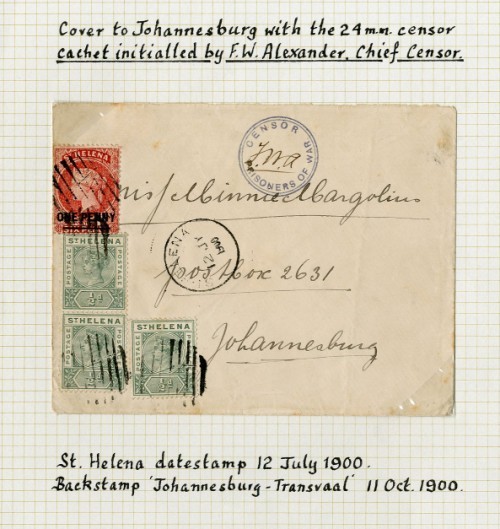 Cover to Johannesburg with the 24 m.m. censor
cachet initialled by F.W. Alexander, Chief Censor.
CENSOR
PRISONERS OF WAR
F.W.A
ST HELENA
ONE PENNY
Miss Minnie Margolius
ST HELENA
JY 12
postbox 2631
POSTAGE
POSTAGE
½d
ST HELENA
POSTAGE
½d
ST HELENA
POSTAGE
POSTAGE
½d
Johannesburg
St. Helena datestamp 12 July 1900.
Backstamp 'Johannesburg - Transvaal' 11 Oct. 1900.